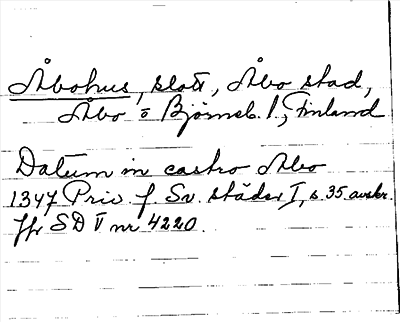 Åbohus, slott, Åbo stad,
Åbo o Björneb. l., Finland
Datum in castro Abo
1347 Priv. f. Sv. städer I, s. 35. avskr.
jfr SD V nr 4220.